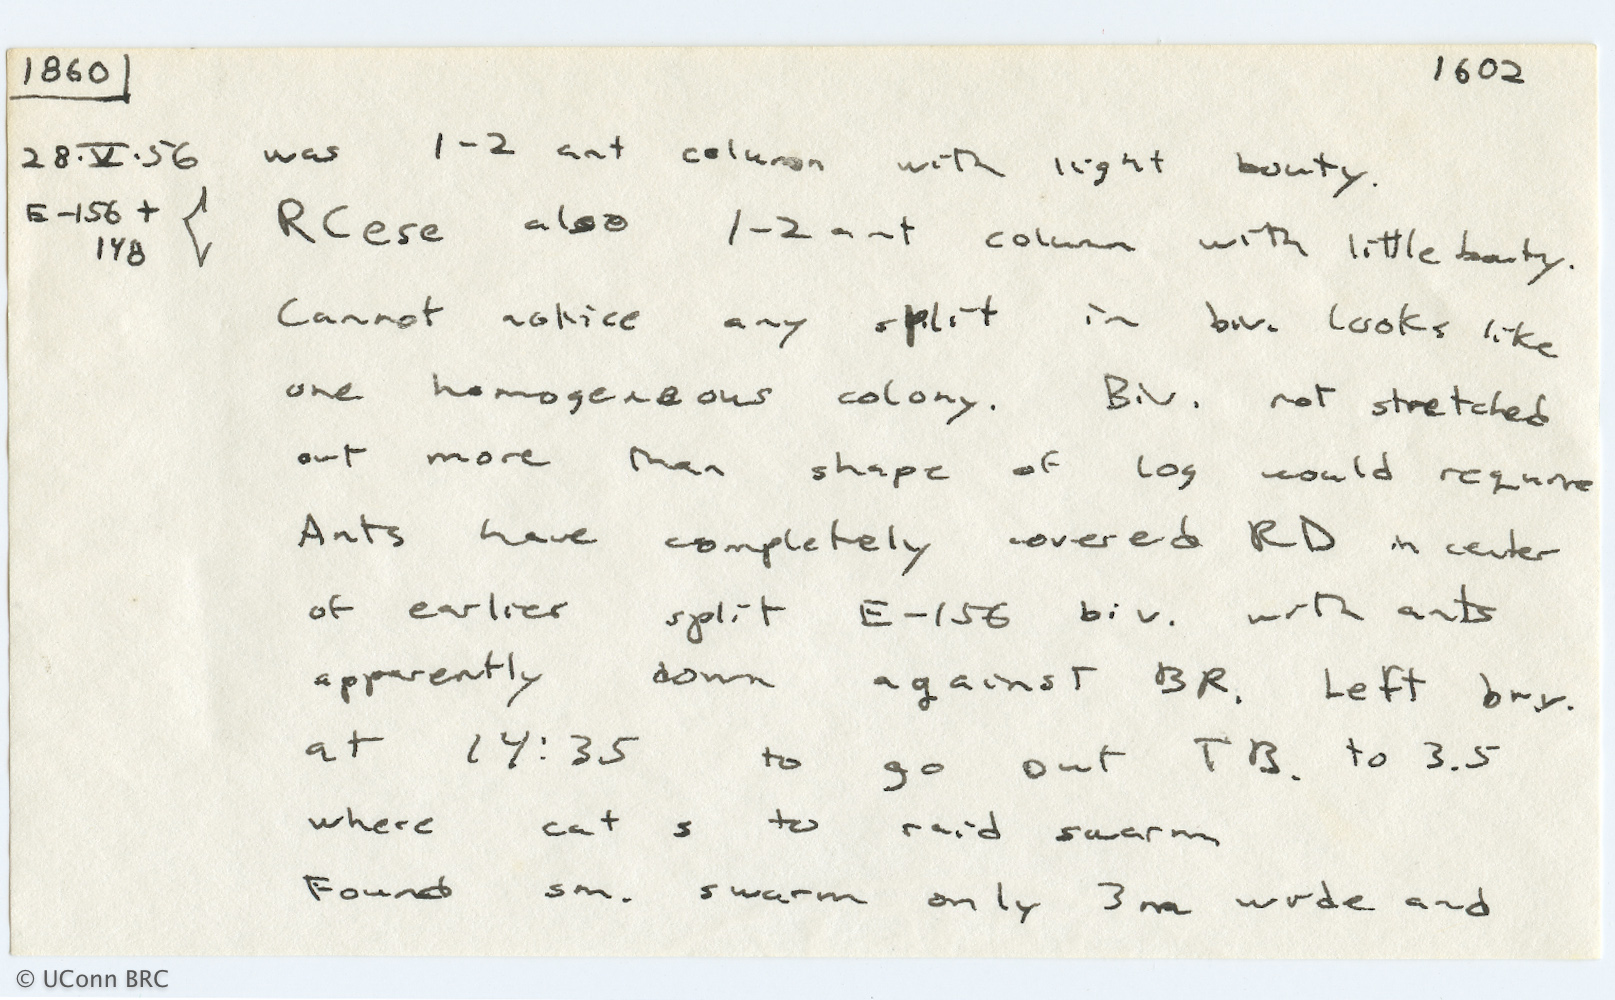 1860 1602
28.V.56 was 1-2 ant column with light booty.
E-156 + RCese also 1-2 ant column with little booty.
148
Cannot notice any split in biv. looks like
one homogeneous colony. Biv. not stretched
out more than shape of log would require
Ants have completely covered RD in center
of earlier split E-156 biv. with ants
apparently down against BR. Left bivy.
at 14:35 to go out TB. to 3.5
where cat s to raid swarm
Found sm. swarm only 3m wide and
© UConn BRC